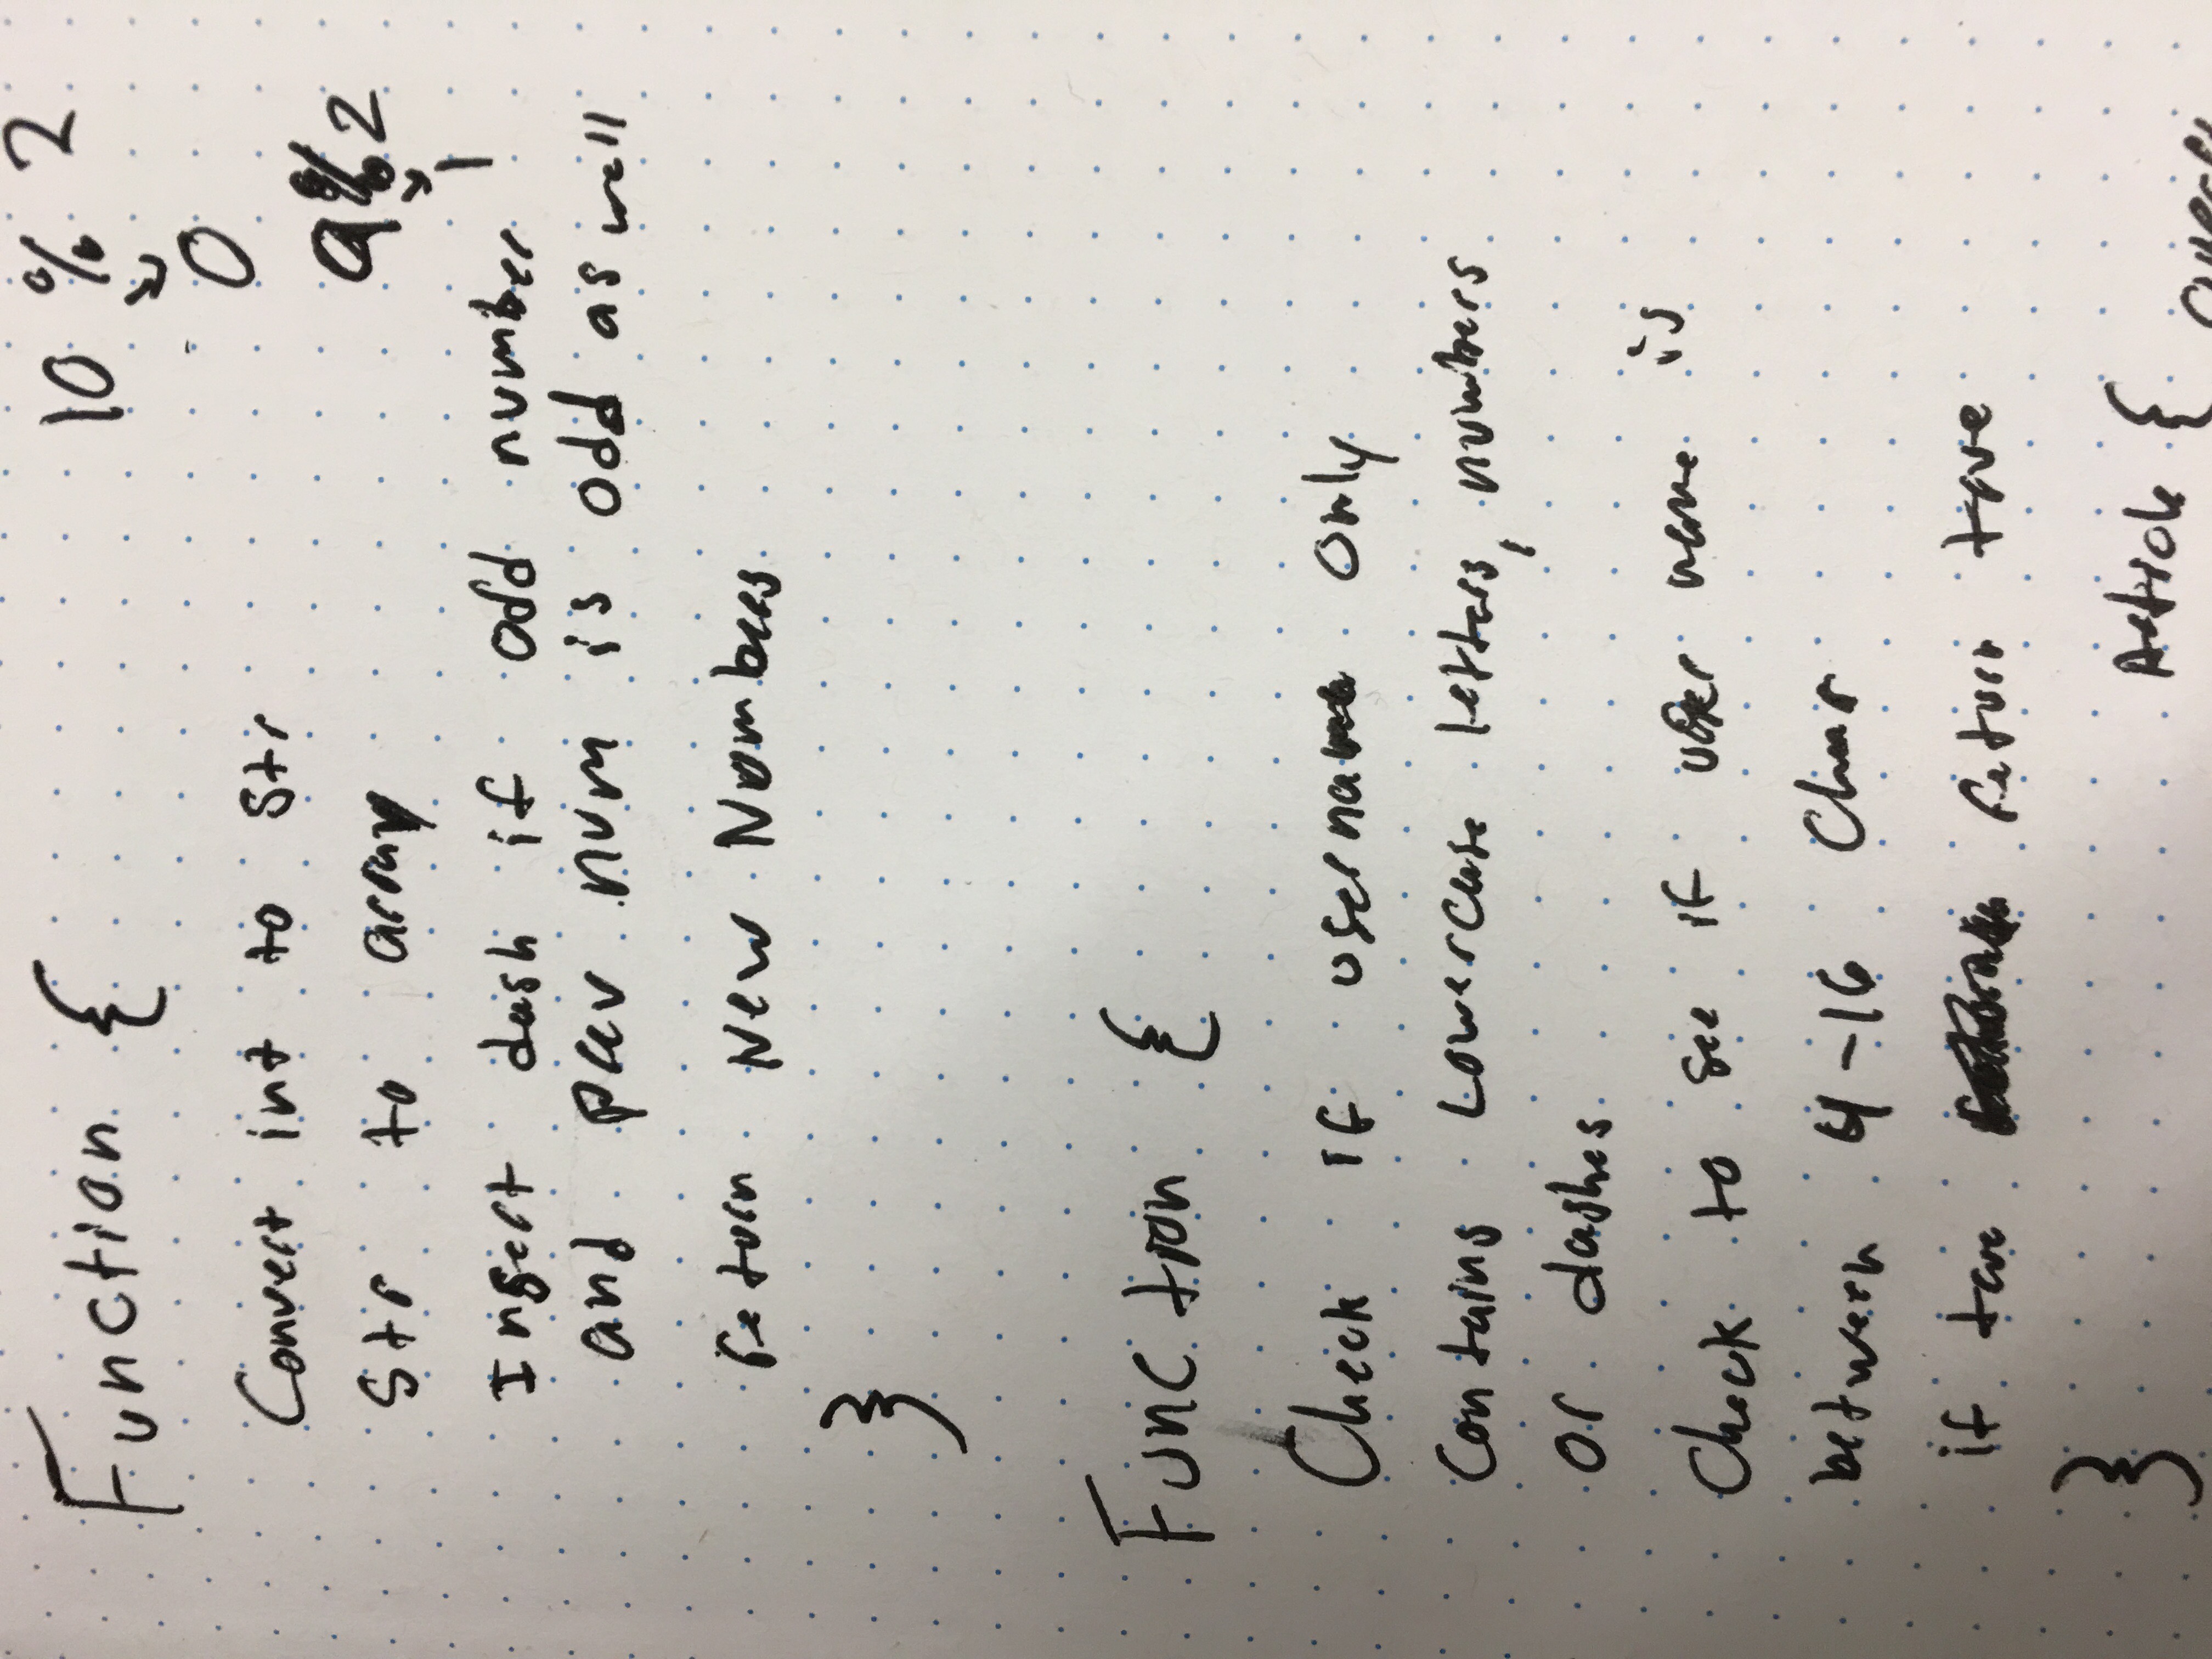 Function {
10 % 2
0
Convert int to str
9%2
1
Str to array
Insert dash if odd number
and prev num is odd as well
return New Numbers
}
Function {
Check if username only
Contains Lowercase letters, numbers
or dashes
Check to see if user name is
between 4-16 Char
if true return true
}
Article {